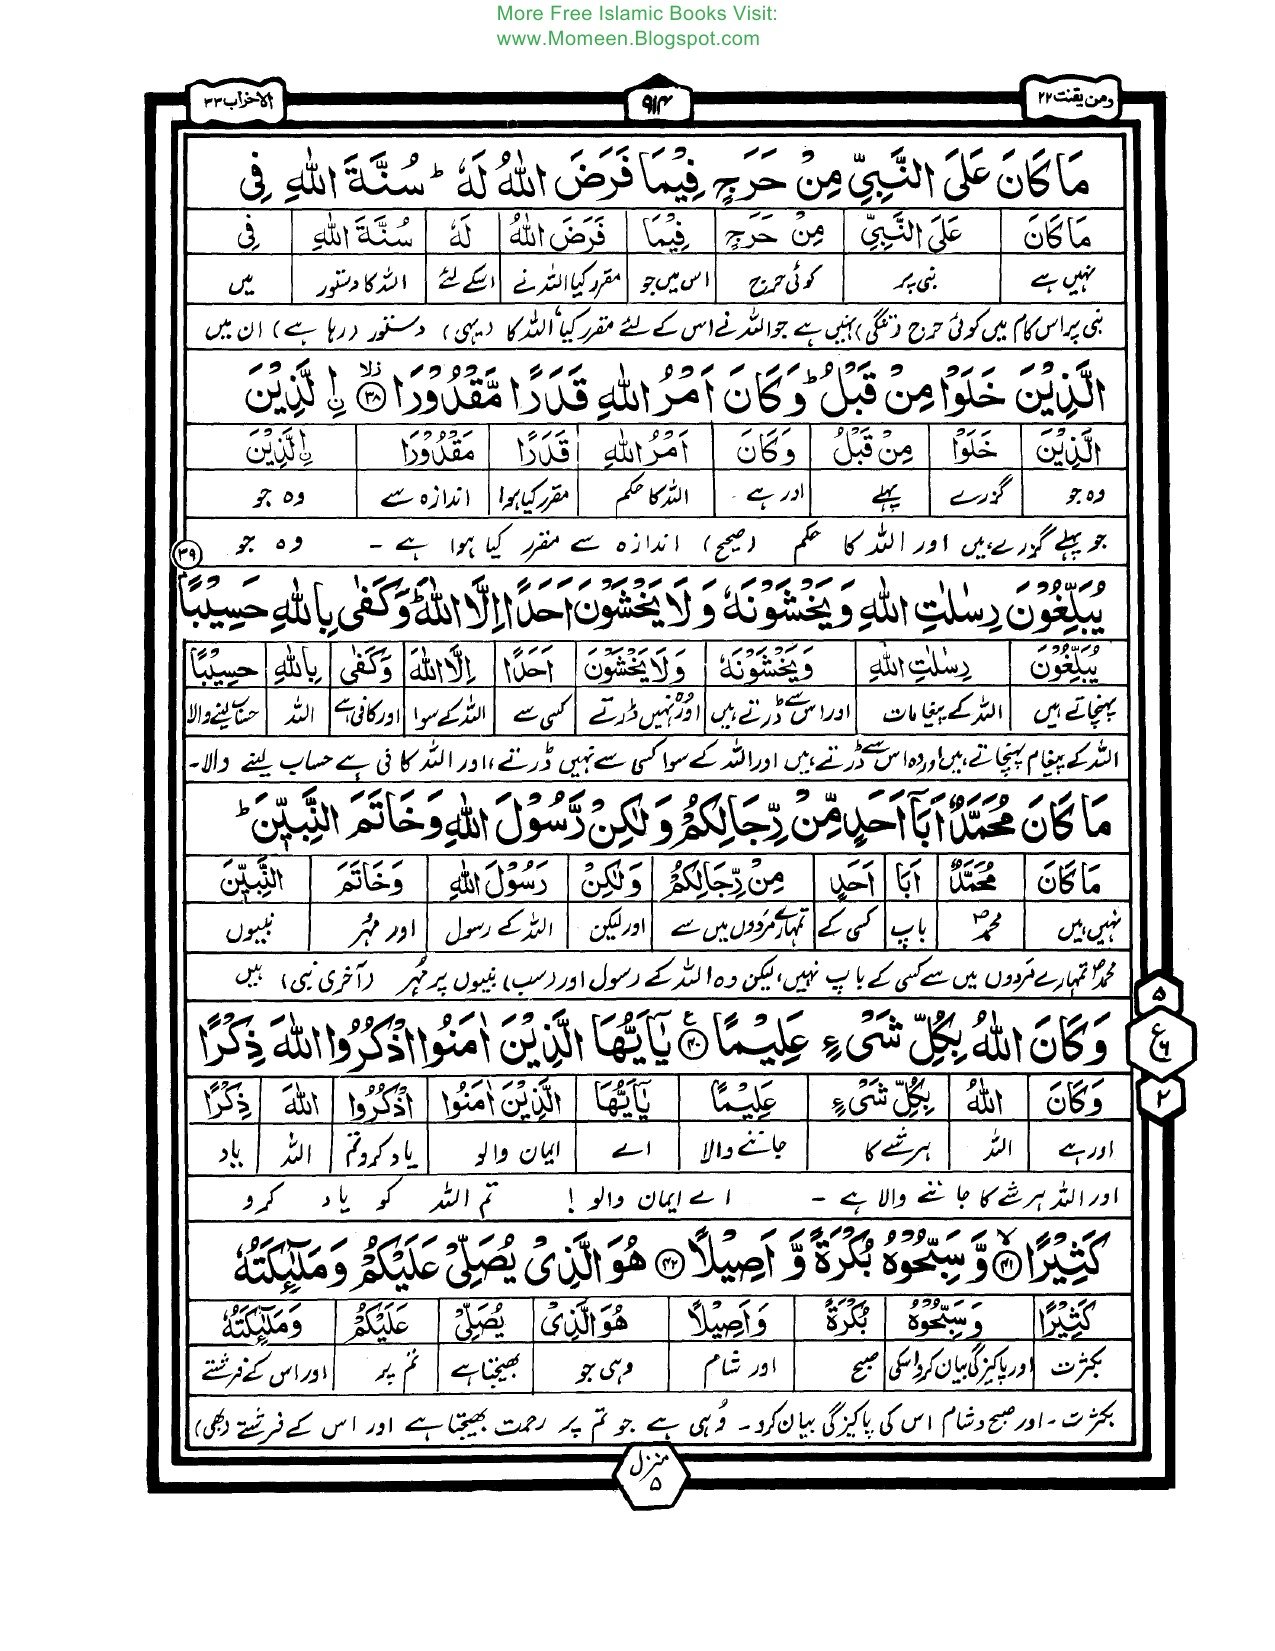 More Free Islamic Books Visit:
www.Momeen.Blogspot.com
ومن یقنت ۲۲
۹۱۴
الاحزاب ۳۳
مَا كَانَ عَلَى النَّبِيِّ مِنْ حَرَجٍ فِيْمَا فَرَضَ اللّٰهُ لَهٗ ؕ سُنَّةَ اللّٰهِ فِی
مَا كَانَ عَلَى النَّبِيِّ مِنْ حَرَجٍ فِيْمَا فَرَضَ اللّٰهُ لَهٗ سُنَّةَ اللّٰهِ فِی
نہیں ہے نبی پر کوئی حرج اس میں جو مقرر کیا اللہ نے اسکے لئے اللہ کا دستور میں
نبی پر اس کام میں کوئی حرج (تنگی) نہیں ہے جو اللہ نے اس کے لئے مقرر کیا، اللہ کا (یہی) دستور (رہا ہے) ان میں
الَّذِيْنَ خَلَوْا مِنْ قَبْلُ ؕ وَكَانَ اَمْرُ اللّٰهِ قَدَرًا مَّقْدُوْرًا ۳۸ۙ اِ۟لَّذِيْنَ
الَّذِيْنَ خَلَوْا مِنْ قَبْلُ وَكَانَ اَمْرُ اللّٰهِ قَدَرًا مَقْدُوْرًا اِ۟لَّذِيْنَ
وہ جو گزرے پہلے اور ہے اللہ کا حکم مقرر کیا ہوا اندازہ سے وہ جو
جو پہلے گزرے ہیں اور اللہ کا حکم (صحیح) اندازہ سے مقرر کیا ہوا ہے - وہ جو
يُبَلِّغُوْنَ رِسٰلٰتِ اللّٰهِ وَيَخْشَوْنَهٗ وَلَا يَخْشَوْنَ اَحَدًا اِلَّا اللّٰهَ ؕ وَكَفٰى بِاللّٰهِ حَسِيْبًا ۳۹
يُبَلِّغُوْنَ رِسٰلٰتِ اللّٰهِ وَيَخْشَوْنَهٗ وَلَا يَخْشَوْنَ اَحَدًا اِلَّا اللّٰهَ وَكَفٰى بِاللّٰهِ حَسِيْبًا
پہنچاتے ہیں اللہ کے پیغامات اور اس سے ڈرتے ہیں اور وہ نہیں ڈرتے کسی سے اللہ کے سوا اور کافی ہے اللہ حساب لینے والا
اللہ کے پیغام پہنچاتے ہیں اور وہ اس سے ڈرتے ہیں اور اللہ کے سوا کسی سے نہیں ڈرتے، اور اللہ کافی ہے حساب لینے والا -
مَا كَانَ مُحَمَّدٌ اَبَآ اَحَدٍ مِّنْ رِّجَالِكُمْ وَلٰكِنْ رَّسُوْلَ اللّٰهِ وَخَاتَمَ النَّبِيّٖنَ ؕ
مَا كَانَ مُحَمَّدٌ اَبَا اَحَدٍ مِنْ رِّجَالِكُمْ وَلٰكِنْ رَسُوْلَ اللّٰهِ وَخَاتَمَ النَّبِيّٖنَ
نہیں ہیں محمدؐ باپ کسی کے تمہارے مردوں میں سے اور لیکن اللہ کے رسول اور مہر نبیوں
محمدؐ تمہارے مردوں میں سے کسی کے باپ نہیں، لیکن وہ اللہ کے رسول اور (سب) نبیوں پر مہر (آخری نبی) ہیں
وَكَانَ اللّٰهُ بِكُلِّ شَىْءٍ عَلِيْمًا ۴۰ۧ يٰٓاَيُّهَا الَّذِيْنَ اٰمَنُوا اذْكُرُوا اللّٰهَ ذِكْرًا
وَكَانَ اللّٰهُ بِكُلِّ شَىْءٍ عَلِيْمًا يٰٓاَيُّهَا الَّذِيْنَ اٰمَنُوا اذْكُرُوا اللّٰهَ ذِكْرًا
اور ہے اللہ ہر شے کا جاننے والا اے ایمان والو یاد کرو تم اللہ یاد
اور اللہ ہر شے کا جاننے والا ہے - اے ایمان والو ! تم اللہ کو یاد کرو
۵
ع ۶
۲
كَثِيْرًا ۴۱ۙ وَّسَبِّحُوْهُ بُكْرَةً وَّاَصِيْلًا ۴۲ هُوَ الَّذِىْ يُصَلِّىْ عَلَيْكُمْ وَمَلٰٓئِكَتُهٗ
كَثِيْرًا وَسَبِّحُوْهُ بُكْرَةً وَاَصِيْلًا هُوَ الَّذِىْ يُصَلِّىْ عَلَيْكُمْ وَمَلٰٓئِكَتُهٗ
بکثرت اور پاکیزگی بیان کرو اسکی صبح اور شام وہی جو بھیجتا ہے تم پر اور اس کے فرشتے
بکثرت - اور صبح و شام اس کی پاکیزگی بیان کرو - وہی ہے جو تم پر رحمت بھیجتا ہے اور اس کے فرشتے (بھی)
منزل ۵